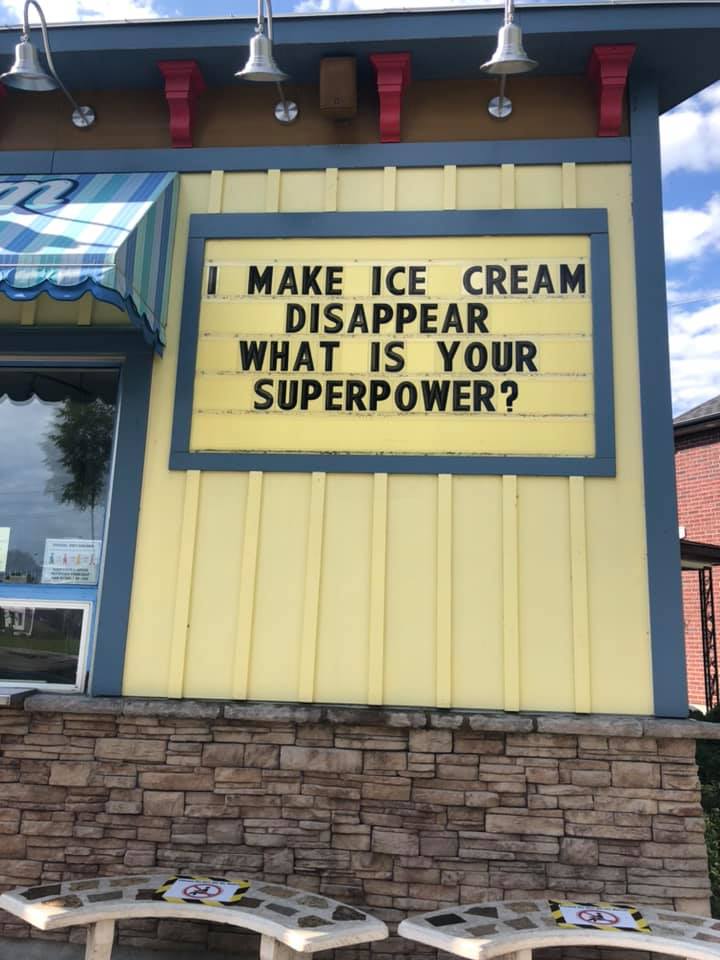 I MAKE ICE CREAM
DISAPPEAR
WHAT IS YOUR
SUPERPOWER?